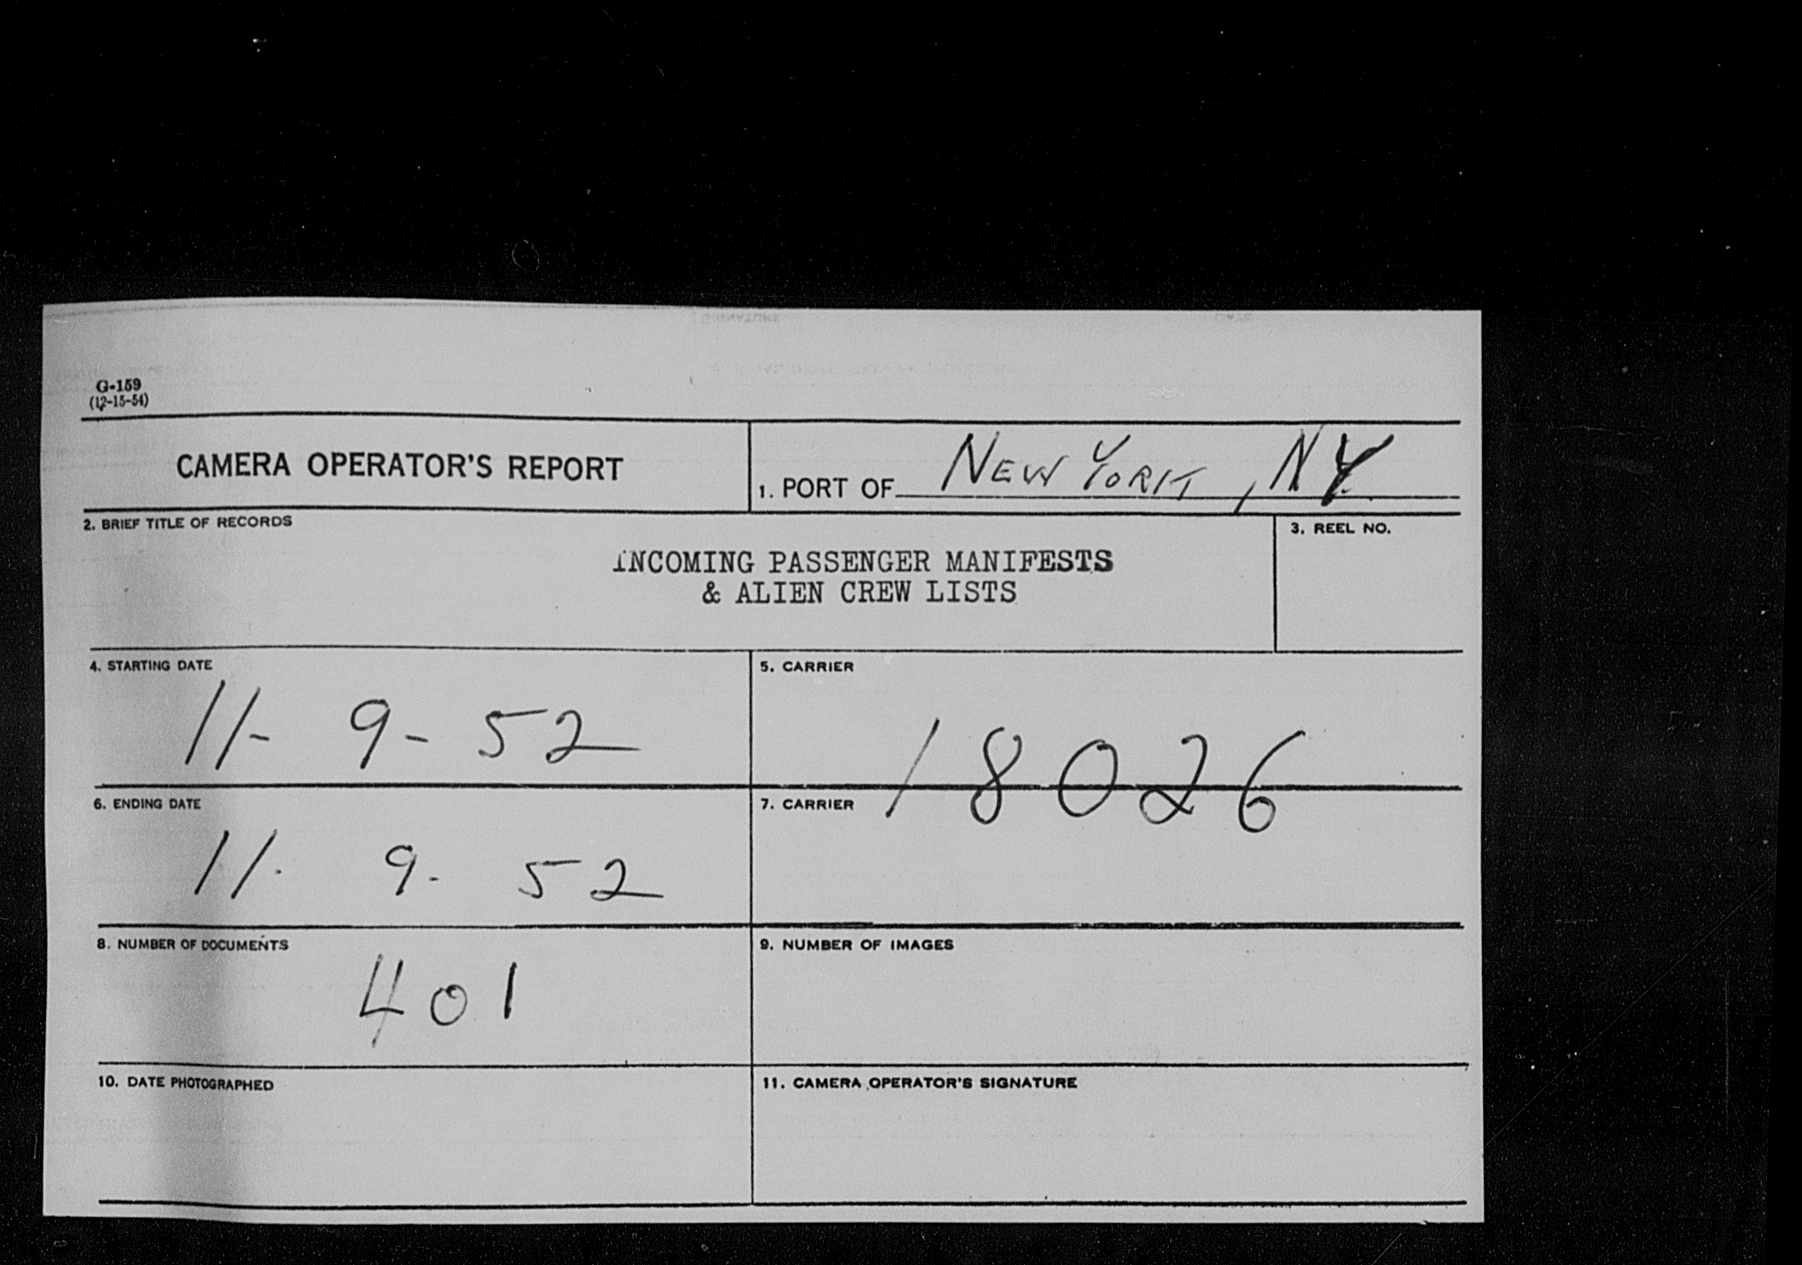 G-159
(12-15-54)
CAMERA OPERATOR'S REPORT
1. PORT OF NEW YORK, NY
2. BRIEF TITLE OF RECORDS
INCOMING PASSENGER MANIFESTS
& ALIEN CREW LISTS
3. REEL NO.
4. STARTING DATE
11- 9- 52
5. CARRIER
18026
6. ENDING DATE
11. 9. 52
7. CARRIER
8. NUMBER OF DOCUMENTS
401
9. NUMBER OF IMAGES
10. DATE PHOTOGRAPHED
11. CAMERA OPERATOR'S SIGNATURE